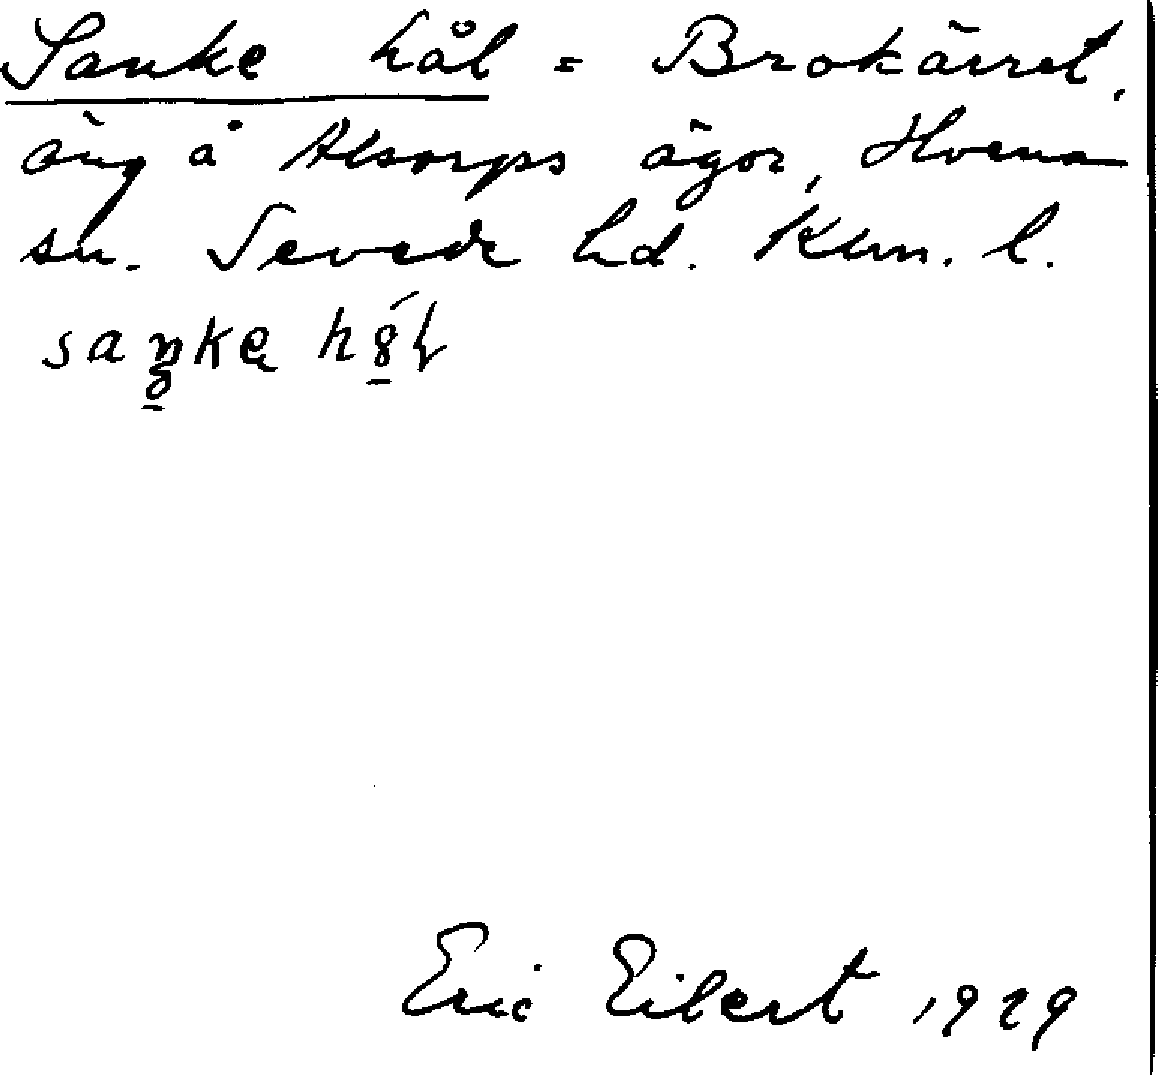 Sanke hål = Brokärret,
äng å Alsarps ägor, Hvena
sn. Sevede hd. Klm. l.
saŋke hål
Eric Eilert 1929